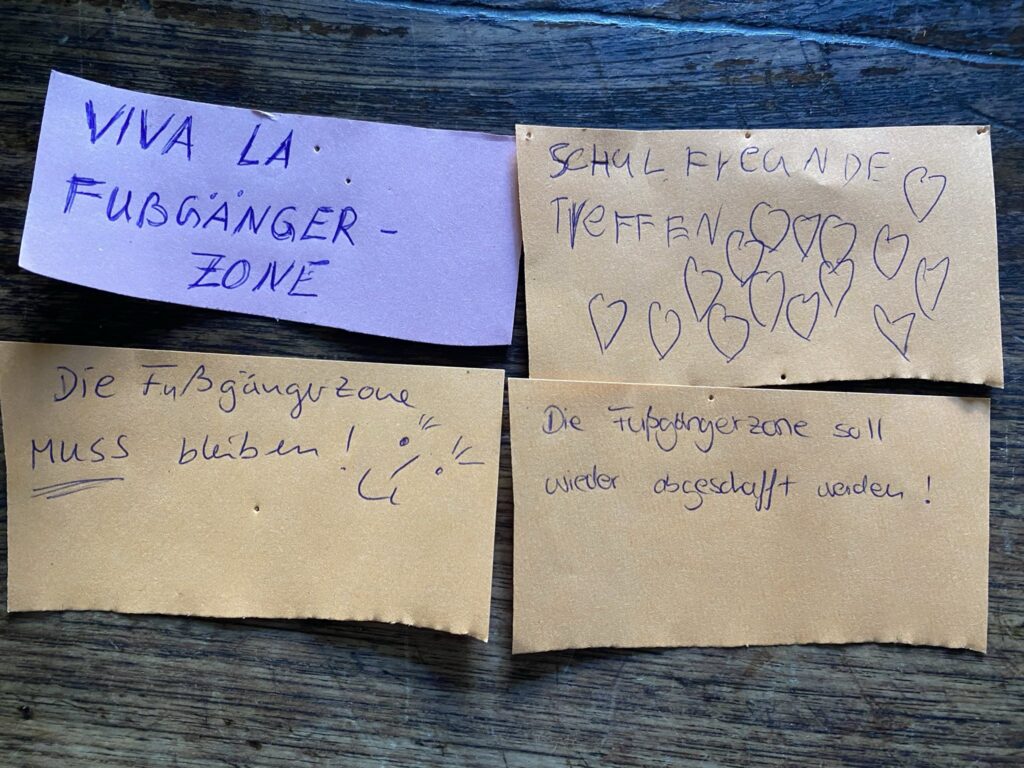 VIVA LA
FUßGÄNGER-
ZONE
SCHULFREUNDE
TREFFEN
Die Fußgängerzone
MUSS bleiben!
Die Fußgängerzone soll
wieder abgeschafft werden!